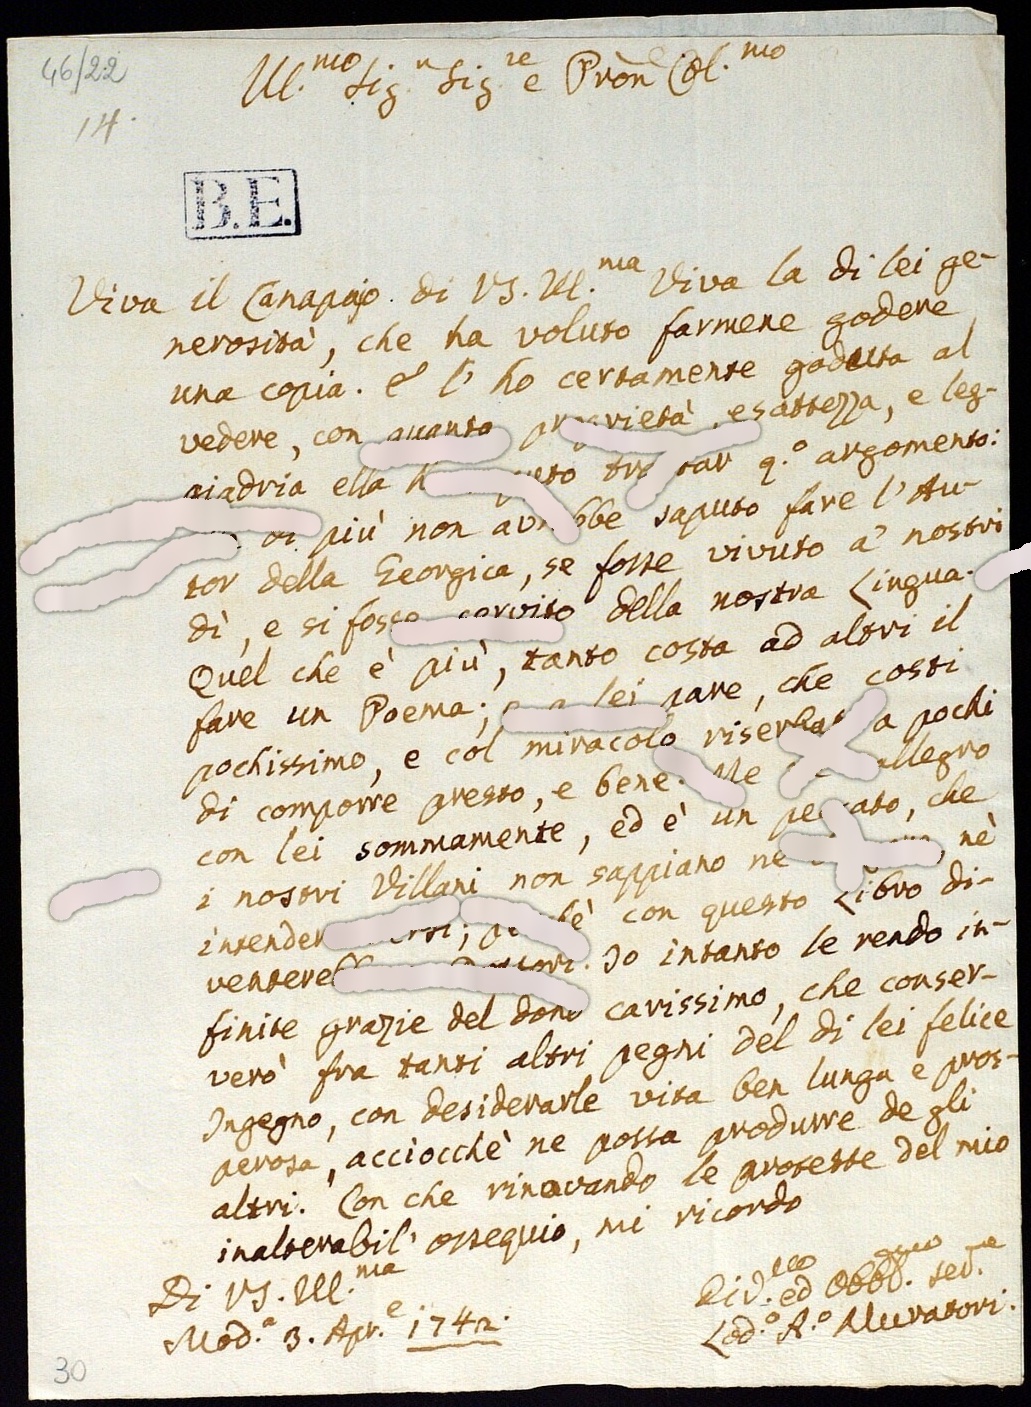 46/22
14.
Ill.mo Sig.r Sig.re e Pròn Col.mo
B.E.
Viva il Canapajo di VS. Ill.ma Viva la di lei ge-
nerosità, che ha voluto farmene godere
una copia. E l'ho certamente goduta al
vedere, con quanto proprietà, esattezza, e leg-
giadria ella q.o argomento:
di più non avrebbe saputo fare l'Au-
tor della Georgica, se fosse vivuto a' nostri
dì, e si fosse servito della nostra Lingua.
Quel che è più, tanto costa ad altri il
fare un Poema; a lei pare, che costi
pochissimo, e col miracolo riserbato a pochi
di comporre presto, e bene. Me allegro
con lei sommamente, ed è un peccato, che
i nostri Villani non sappiano nè nè
intender versi; perchè con questo Libro di-
Dottori. Io intanto le rendo in-
finite grazie del dono carissimo, che conser-
verò fra tanti altri pegni del di lei felice
Ingegno, con desiderarle vita ben lunga e pros-
perosa, acciocchè ne possa produrre de gli
altri. Con che rinovando le proteste del mio
inalterabil' ossequio, mi ricordo
Di VS. Ill.ma
Mod.a 3. Apr.e 1742.
Div.mo ed Obbl.mo Ser.re
Lod.o A.o Muratori.
30